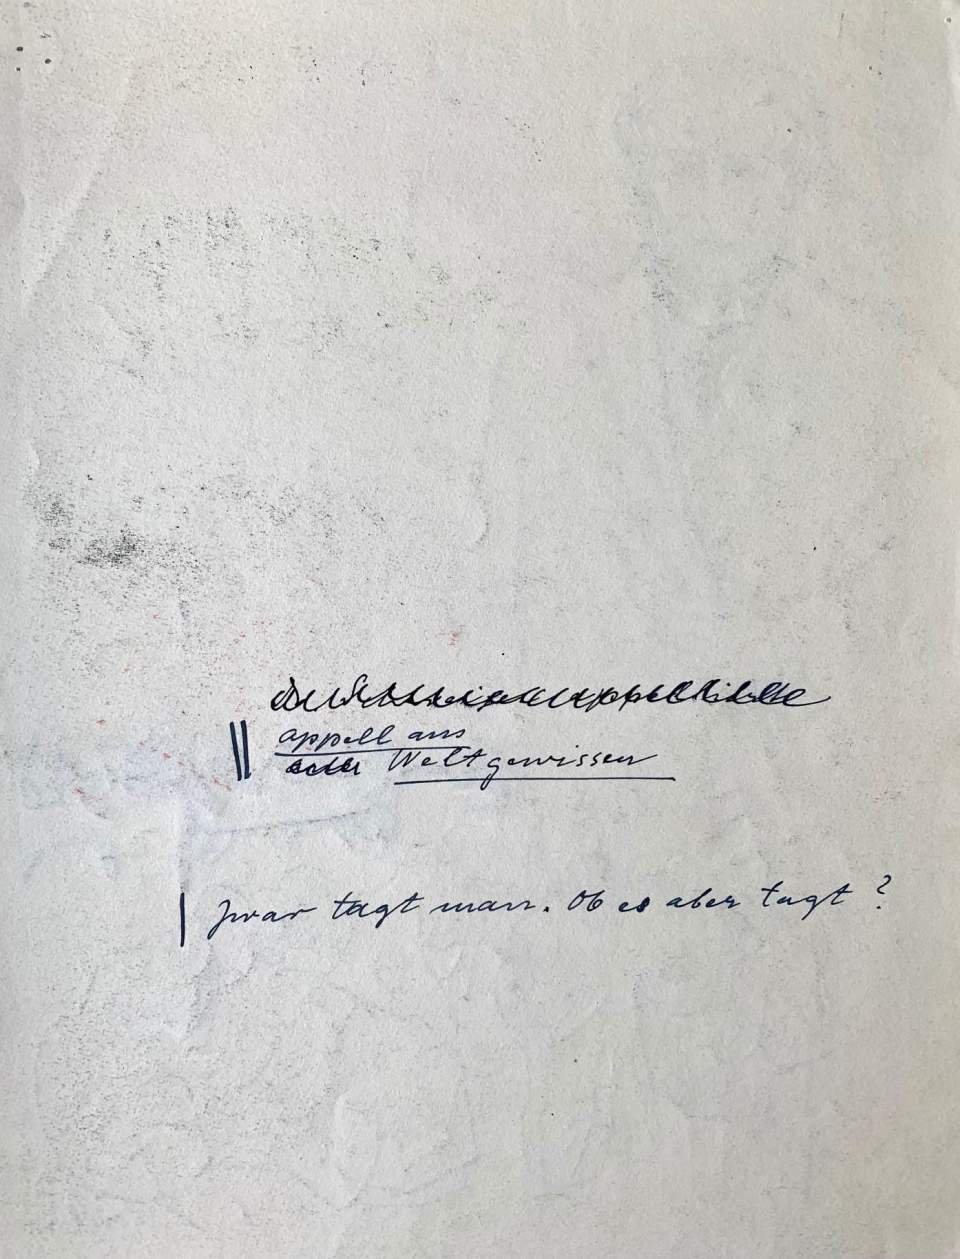 appell ans
Weltgewissen
Zwar tagt man. Ob es aber tagt?